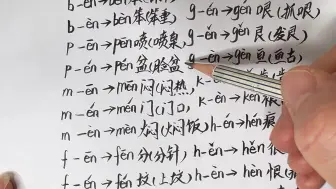 b-èn→bèn笨(笨重, g-ěn→gěn哏(抓哏)
p-ēn→pēn喷(喷泉, g-ěn→gěn艮(发艮)
p-én→pén盆(脸盆 g-èn→gèn亘(亘古)
m-ēn→mēn闷(闷热, k-ěn→kěn
m-én→mén门(门口, k-èn→
m-èn→mèn焖(焖饭), h-én→hén痕
f-ēn→fēn分(分针) h-ěn→hěn
f-én→fén坟(上坟) h-èn→hèn恨